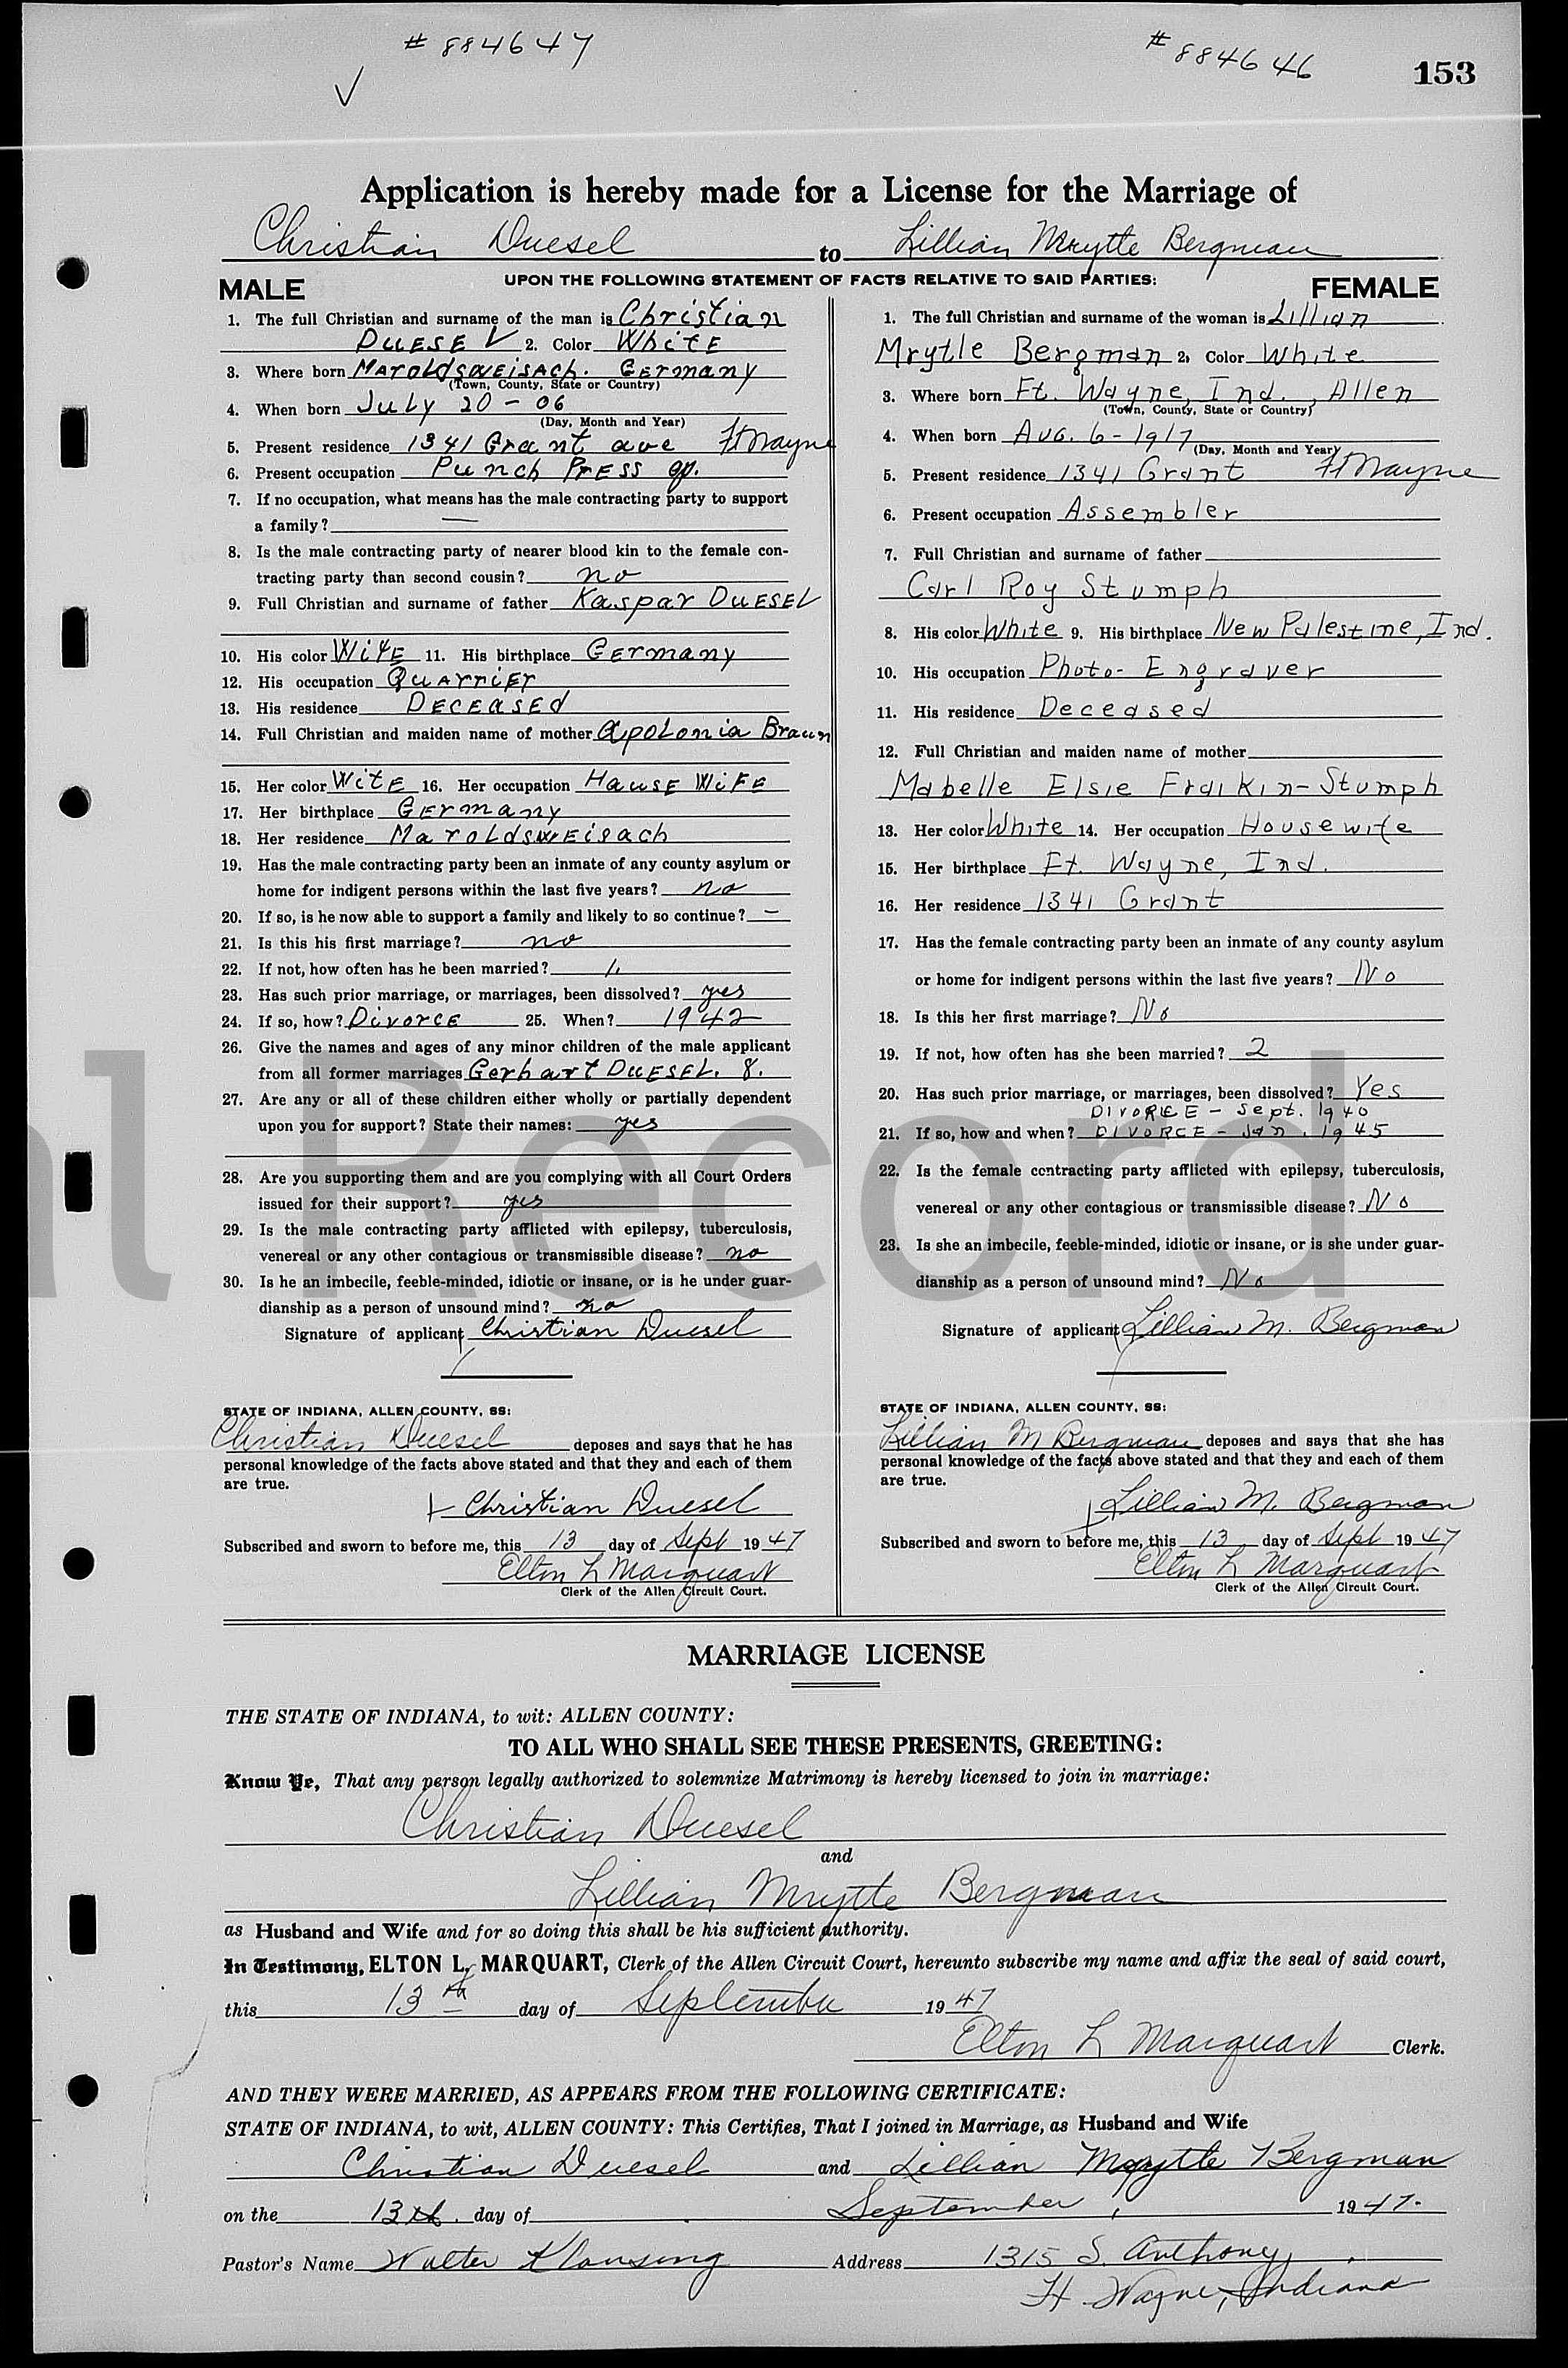 # 884647 # 884646 153
✓
Application is hereby made for a License for the Marriage of
Christian Duesel to Lillian Mrytle Bergman
MALE UPON THE FOLLOWING STATEMENT OF FACTS RELATIVE TO SAID PARTIES: FEMALE
1. The full Christian and surname of the man is Christian
DUESEL 2. Color WhitE
3. Where born MAROLdSWEiSACh. GErmany
(Town, County, State or Country)
4. When born July 20 - 06
(Day, Month and Year)
5. Present residence 1341 Grant ave Ft Wayne
6. Present occupation Punch PrESS op.
7. If no occupation, what means has the male contracting party to support
a family? —
8. Is the male contracting party of nearer blood kin to the female con-
tracting party than second cousin? no
9. Full Christian and surname of father Kaspar DuESEL
10. His color WitE 11. His birthplace GErmany
12. His occupation QuArriEr
13. His residence DECEASEd
14. Full Christian and maiden name of mother ApoLonia Braun
15. Her color WitE 16. Her occupation HausE WiFE
17. Her birthplace GErmany
18. Her residence MaroLdswEisach
19. Has the male contracting party been an inmate of any county asylum or
home for indigent persons within the last five years? no
20. If so, is he now able to support a family and likely to so continue? —
21. Is this his first marriage? no
22. If not, how often has he been married? 1.
23. Has such prior marriage, or marriages, been dissolved? yes
24. If so, how? DivorcE 25. When? 1942
26. Give the names and ages of any minor children of the male applicant
from all former marriages Gerhart DuESEL. 8.
27. Are any or all of these children either wholly or partially dependent
upon you for support? State their names: yes
28. Are you supporting them and are you complying with all Court Orders
issued for their support? yes
29. Is the male contracting party afflicted with epilepsy, tuberculosis,
venereal or any other contagious or transmissible disease? no
30. Is he an imbecile, feeble-minded, idiotic or insane, or is he under guar-
dianship as a person of unsound mind? no
Signature of applicant Christian Duesel
STATE OF INDIANA, ALLEN COUNTY, SS:
Christian Duesel deposes and says that he has
personal knowledge of the facts above stated and that they and each of them
are true.
x Christian Duesel
Subscribed and sworn to before me, this 13 day of Sept 1947
Elton L Marquart
Clerk of the Allen Circuit Court.
1. The full Christian and surname of the woman is Lillian
Mrytle Bergman 2. Color White
3. Where born Ft. Wayne, Ind., Allen
(Town, County, State or Country)
4. When born Aug. 6 - 1917
(Day, Month and Year)
5. Present residence 1341 Grant Ft Wayne
6. Present occupation Assembler
7. Full Christian and surname of father
Carl Roy Stumph
8. His color White 9. His birthplace New Palestine, Ind.
10. His occupation Photo- Engraver
11. His residence Deceased
12. Full Christian and maiden name of mother
Mabelle Elsie Fraikin-Stumph
13. Her color White 14. Her occupation Housewife
15. Her birthplace Ft. Wayne, Ind.
16. Her residence 1341 Grant
17. Has the female contracting party been an inmate of any county asylum
or home for indigent persons within the last five years? No
18. Is this her first marriage? No
19. If not, how often has she been married? 2
20. Has such prior marriage, or marriages, been dissolved? Yes
DIVORCE - Sept. 1940
21. If so, how and when? DIVORCE - Jan. 1945
22. Is the female contracting party afflicted with epilepsy, tuberculosis,
venereal or any other contagious or transmissible disease? No
23. Is she an imbecile, feeble-minded, idiotic or insane, or is she under guar-
dianship as a person of unsound mind? No
Signature of applicant Lillian M. Bergman
STATE OF INDIANA, ALLEN COUNTY, SS:
Lillian M Bergman deposes and says that she has
personal knowledge of the facts above stated and that they and each of them
are true.
Lillian M. Bergman
Subscribed and sworn to before me, this 13 day of Sept 1947
Elton L Marquart
Clerk of the Allen Circuit Court.
l Record
MARRIAGE LICENSE
THE STATE OF INDIANA, to wit: ALLEN COUNTY:
TO ALL WHO SHALL SEE THESE PRESENTS, GREETING:
Know Ye, That any person legally authorized to solemnize Matrimony is hereby licensed to join in marriage:
Christian Duesel
and
Lillian Mrytle Bergman
as Husband and Wife and for so doing this shall be his sufficient authority.
In Testimony, ELTON L. MARQUART, Clerk of the Allen Circuit Court, hereunto subscribe my name and affix the seal of said court,
this 13th day of September 1947
Elton L Marquart Clerk.
AND THEY WERE MARRIED, AS APPEARS FROM THE FOLLOWING CERTIFICATE:
STATE OF INDIANA, to wit, ALLEN COUNTY: This Certifies, That I joined in Marriage, as Husband and Wife
Christian Duesel and Lillian Myrtle Bergman
on the 13th. day of September, 1947.
Pastor's Name Walter Klausing Address 1315 S. Anthony,
Ft. Wayne, Indiana